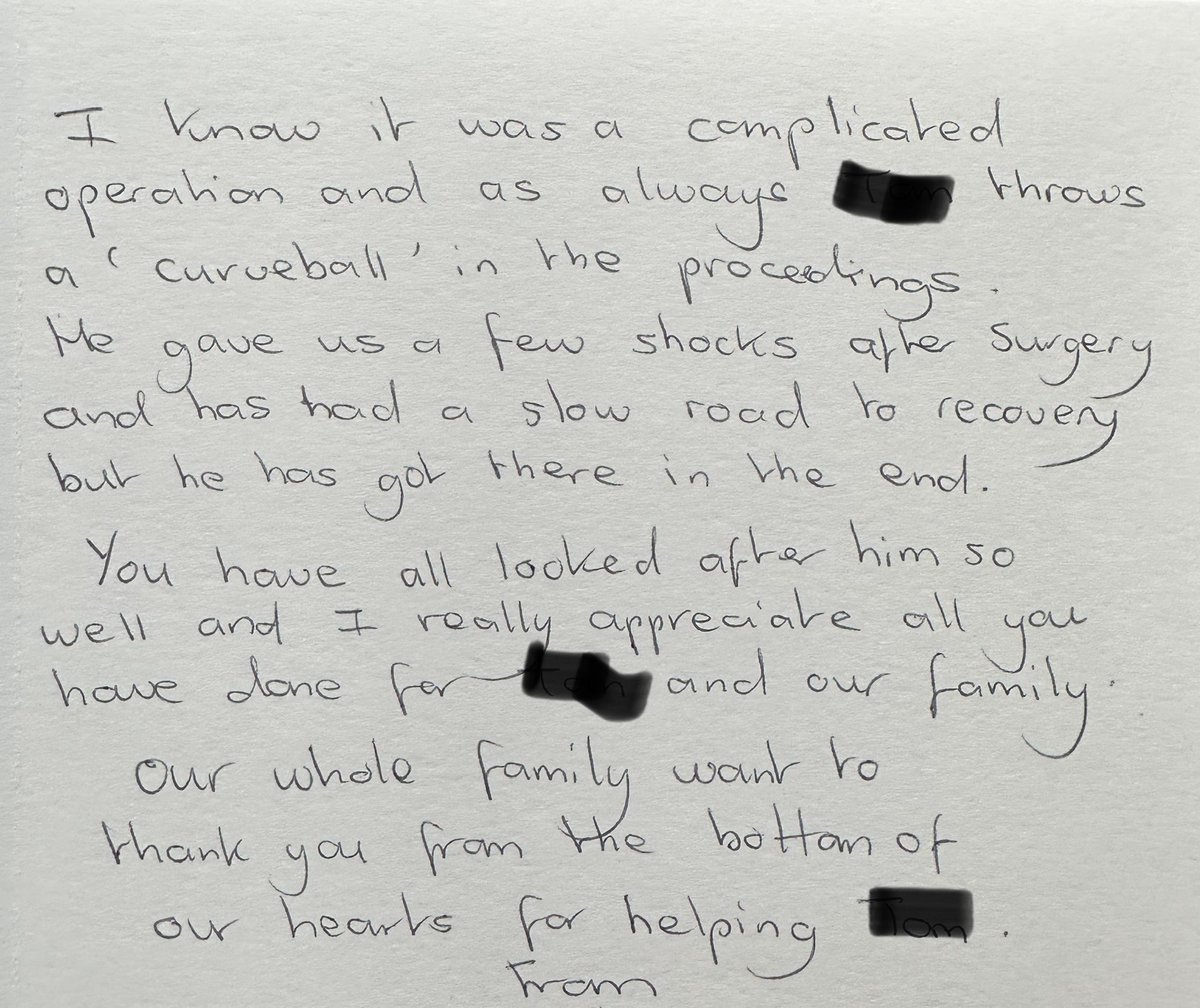 I know it was a complicated
operation and as always throws
a 'curveball' in the proceedings.
He gave us a few shocks after surgery
and has had a slow road to recovery
but he has got there in the end.
You have all looked after him so
well and I really appreciate all you
have done for and our family.
Our whole family want to
thank you from the bottom of
our hearts for helping .
From